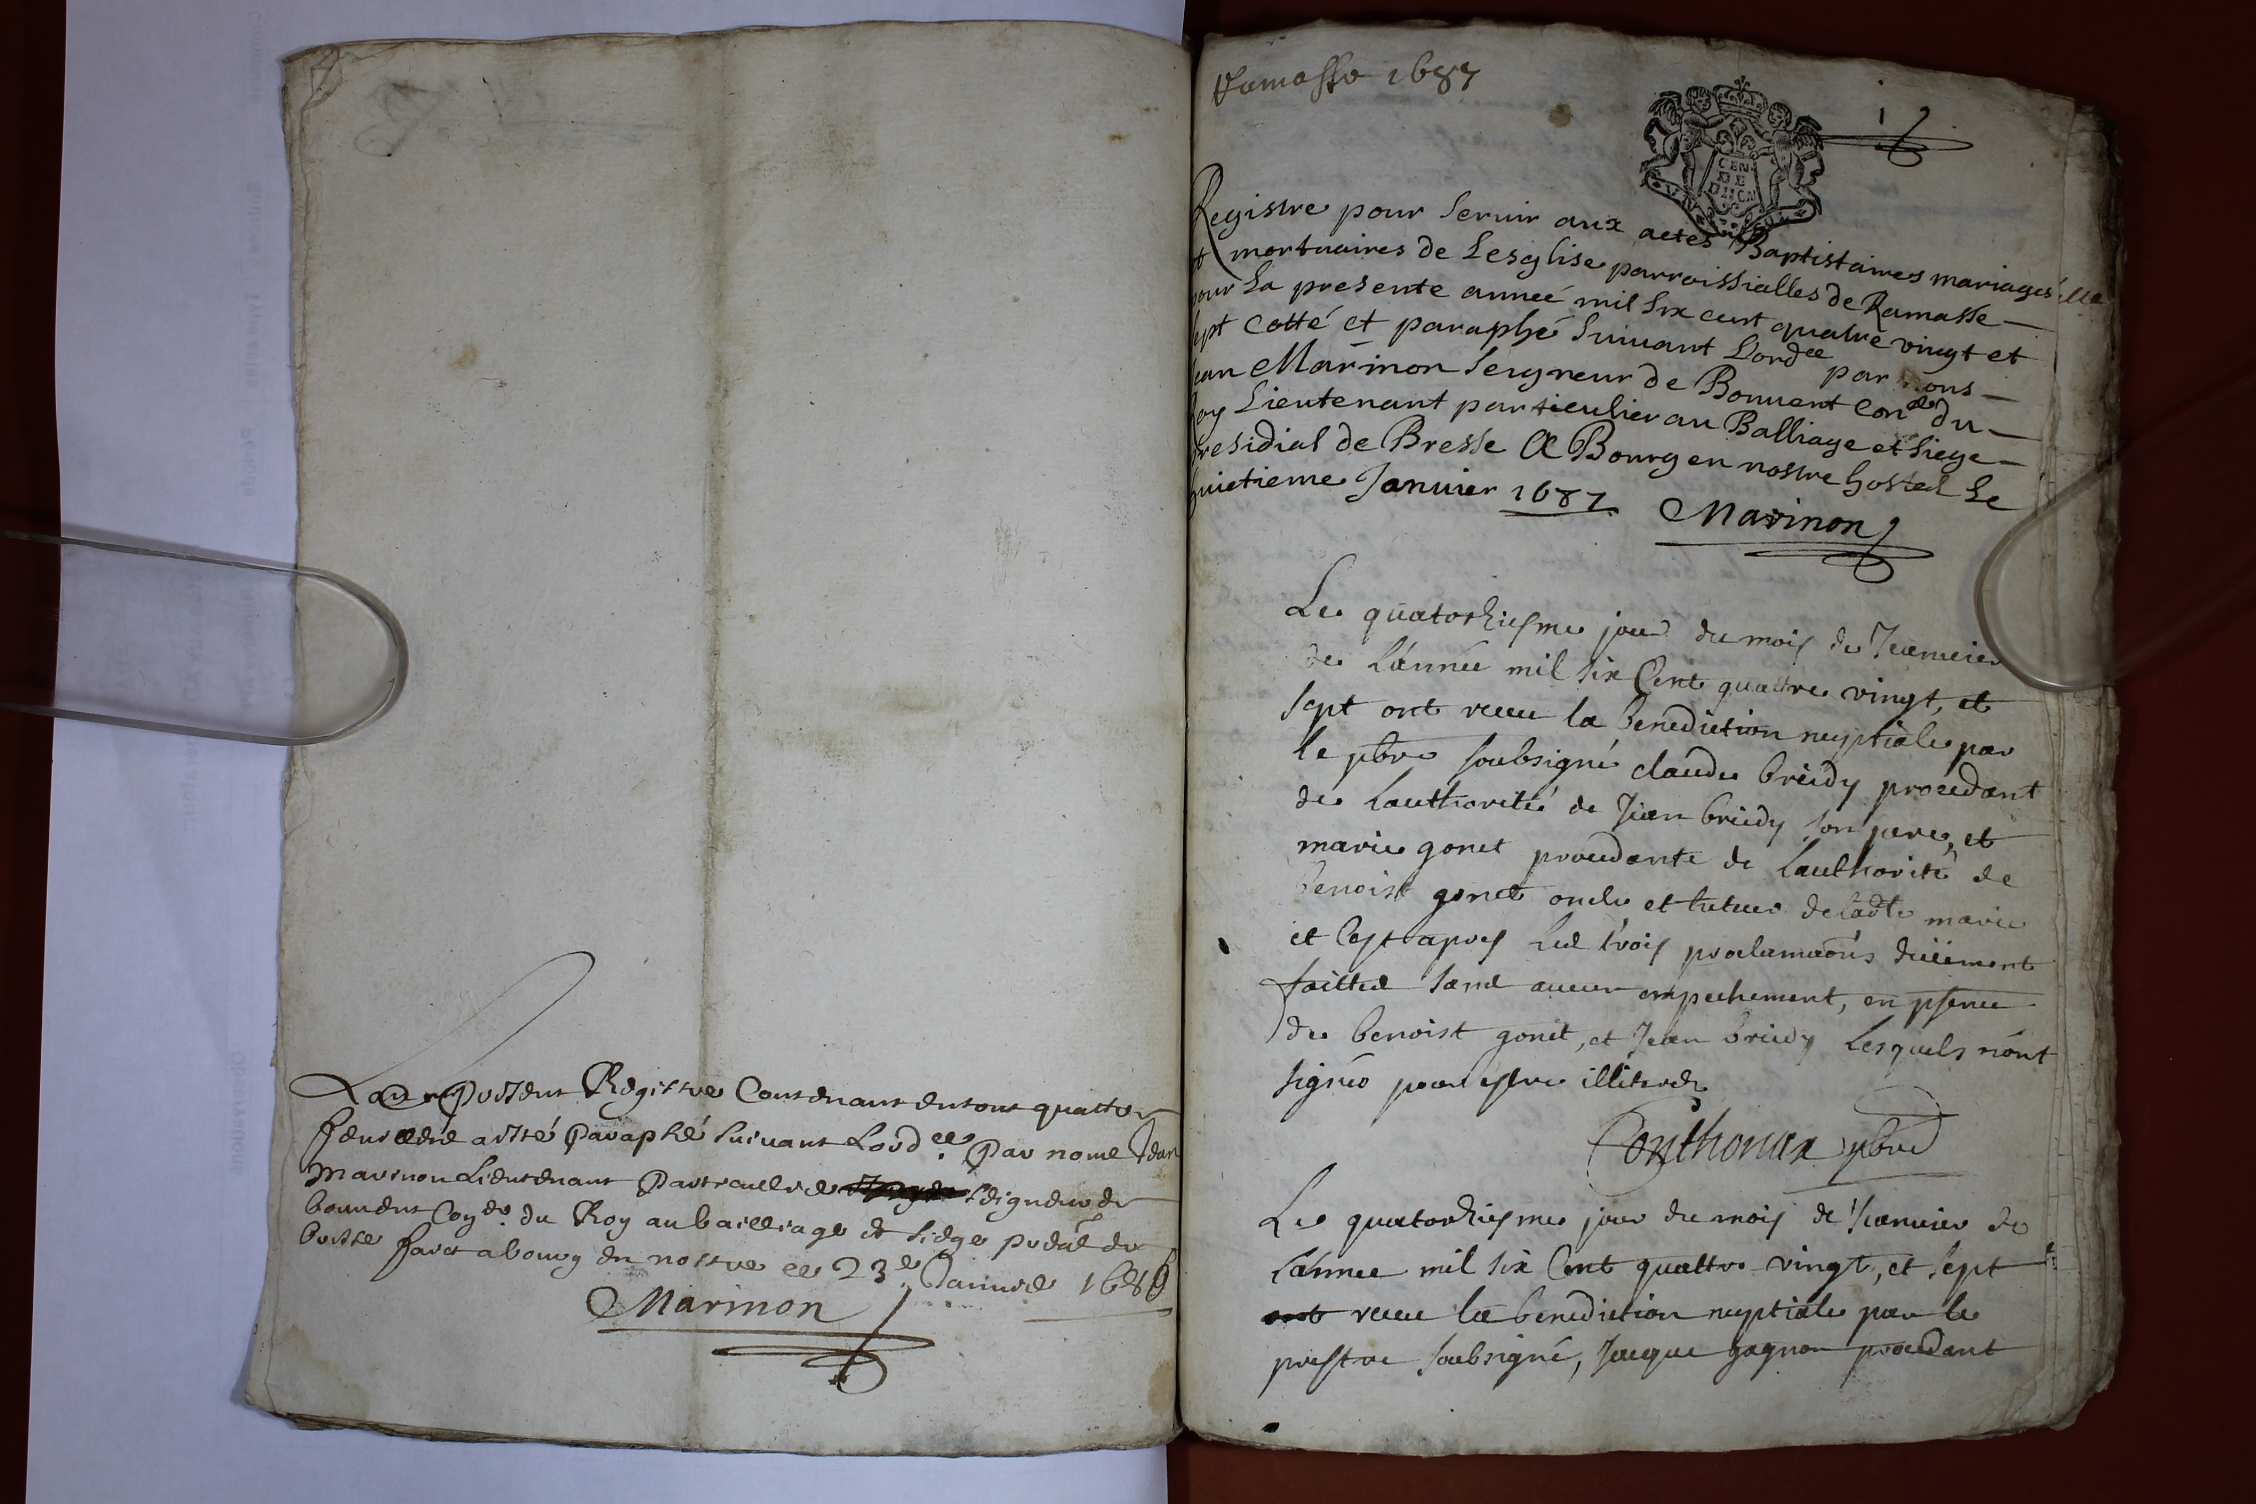 Le present Registre Contenant en tout quattre
feuillets a esté paraphé suivant Lord.ce par nous Jean
Marinon Lieutenant particulier seigneur de
bonuent Con.er du Roy au bailliage et siege pred.al de
bresse faict a bourg en nostre le 23e Januier 1686
Marinon
Ramasse 1687
1
CEN
DE
DIION
Registre pour seruir aux actes Baptistaires mariages
et mortuaires de Lesglise parroissialles de Ramasse
pour La presente année mil six cent quatre vingt et
sept Cotté et paraphé suiuant Lordce par nous
Jean Marinon seigneur de Bonuent Coner du
Roy Lieutenant particulier au Balliage et siege
presidial de Bresse A Bourg en nostre hostel Le
huictieme Januier 1687
Marinon
Le quatorziesme jour du mois de Jeanuier
de Lánnée mil six Cent quattre vingt, et
sept ont receu la benediction nuptiale par
le pbre soubsigné claude briedy procedant
de Lauthorité de Jean briedy son pere, et
marie gonet procedante de Lauthorité de
benoist gonet oncle et tuteur de ladte marie
et Cest apres les trois proclamaons düement
faittes sans aucun empechement, en psence
de benoist gonet, et Jean briedy Lesquels nónt
signéz pour estre illiterez
Conthonax pbre
Le quatorziesme jour du mois de Jeanuier de
Lánnee mil six Cent quattre vingt, et sept
ont receu la benediction nuptiale par le
prestre soubsigné, Jacque gagnon procedant